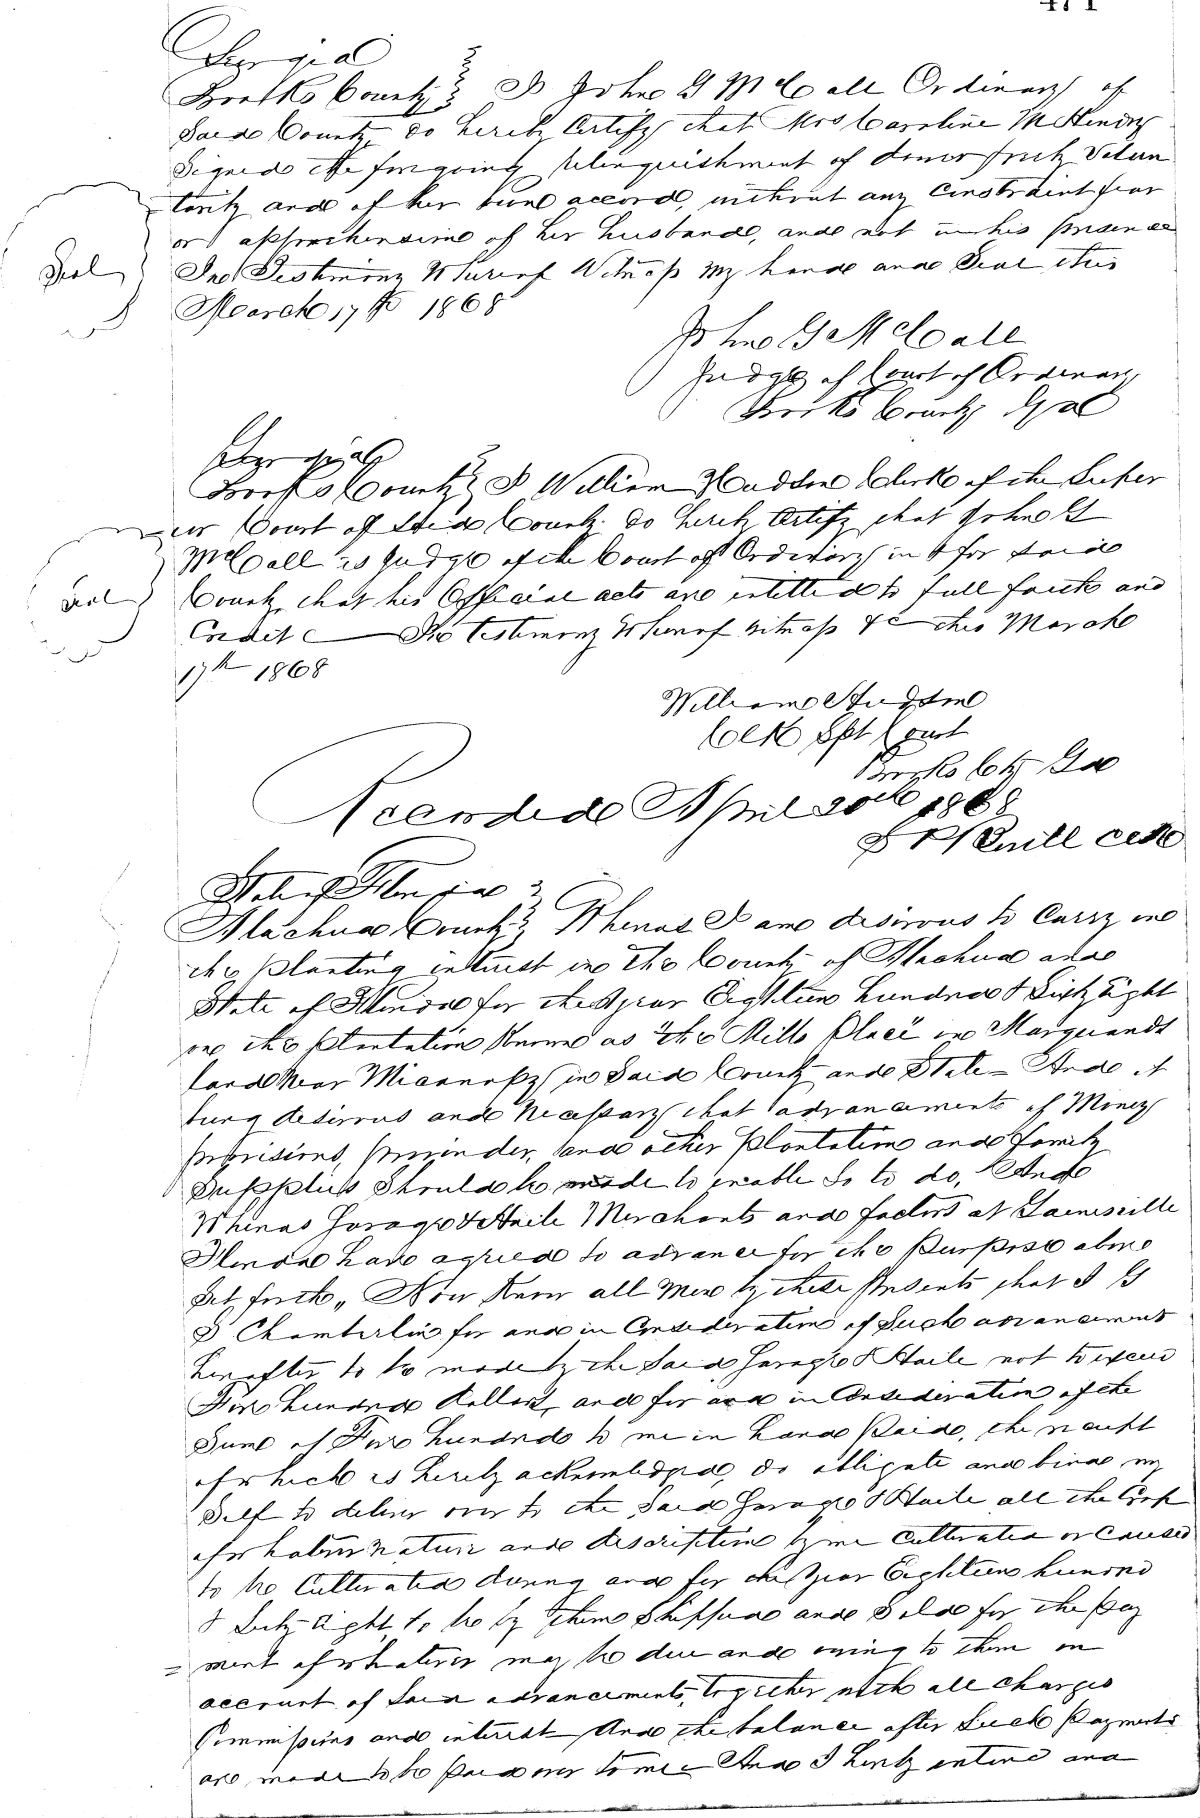 471
Georgia
Brooks County } I John G McCall Ordinary of
Said County do hereby Certify that Mrs Caroline McHenry
Signed the foregoing relinquishment of dower freely Volun
tarily and of her own accord, without any Constraint fear
or apprehension of her husband, and not in his presence
Seal
In Testimony Whereof Witness My hand and Seal this
March 17th 1868
John G McCall
Judge of Court of Ordinary
Brooks County Ga
Georgia
Brooks County } I William Hudson Clerk of the Super
ior Court of Said County do hereby Certify that John G
McCall is Judge of the Court of Ordinary in & for said
Seal
County, that his Official acts are intitled to full faith and
Credit — In testimony Whereof witness &c this March
17th 1868
William Hudson
Clk Spt Court
Brooks Cty Ga
Recorded April 20th 1868
Clk
State of Florida }
Alachua County } Whereas I am desirous to Carry on
the Planting interest in the County of Alachua and
State of Florida for the Year Eighteen hundred & Sixty Eight
on the plantation Known as "the Mills Place" on Marquands
land Near Micanopy in Said County and State – And it
being desirous and Necessary that advancements of Money
provisions, provinder, and other Plantation and family
Supplies Should be made to enable So to do, And
Whereas Savage & Haile Merchants and factors at Gainesville
Florida have agreed to advance for the Purpose above
Set forth, Now Know all Men by these Presents that I G
S Chamberlin for and in Consideration of Such advancements
hereafter to be made by the Said Savage & Haile not to exceed
Five hundred dollars, and for and in Consideration of the
Sum of Five hundred to me in hand Paid, the receipt
of which is hereby acknowledged, do obligate and bind my
Self to deliver over to the Said Savage & Haile all the Crop
of whatever Nature and description by me Cultivated or Caused
to be Cultivated during and for the Year Eighteen hundred
& Sixty Eight, to be by them Shipped and Sold for the pay
= ment of whatever may be due and owing to them on
account of Said advancements, together with all charges
Commissions and interest And the balance after Such Payments
are made to be Paid over to me – And I hereby and